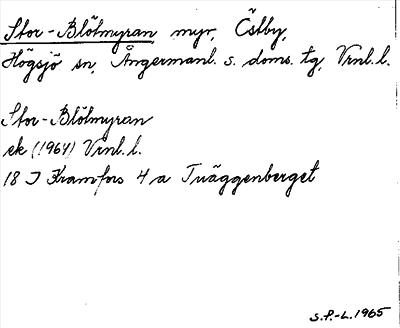 Stor-Blötmyran myr, Östby,
Högsjö sn, Ångermanl. s. doms. tg, Vrnl. l.
Stor-Blötmyran
ek (1964) Vrnl. l.
18 J Kramfors 4 a Tväggenberget
S.P.-L. 1965